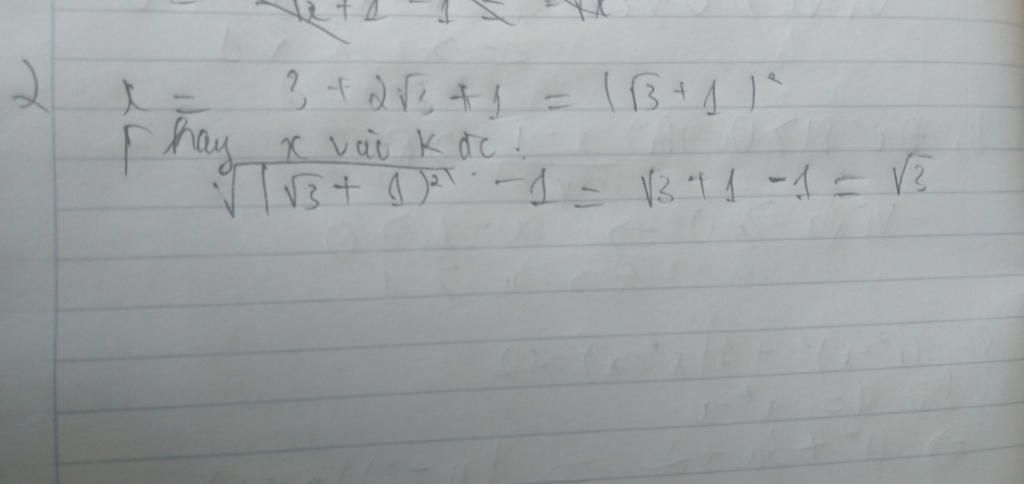 √x + 1 - 1 = √x
2 x = 3 + 2√3 + 1 = (√3 + 1)²
Thay x vài K đc:
√(√3 + 1)² - 1 = √3 + 1 - 1 = √3